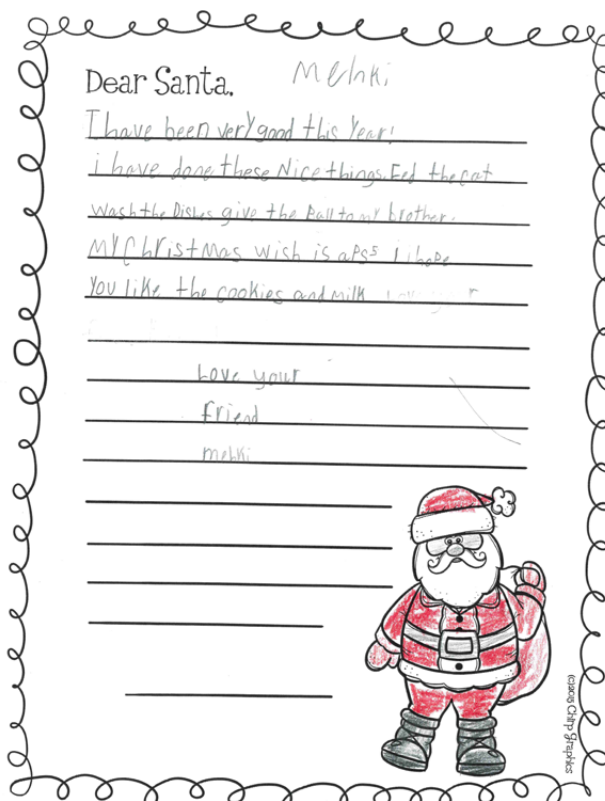 Dear Santa, Mehki
I have been very good this Year!
i have done these Nice things. Fed the cat
wash the Dishes give the Ball to my brother.
MY Christmas wish is a Ps5 I hope
You like the cookies and milk
Love your
friend
mehki
(c)2015 Chirp Graphics